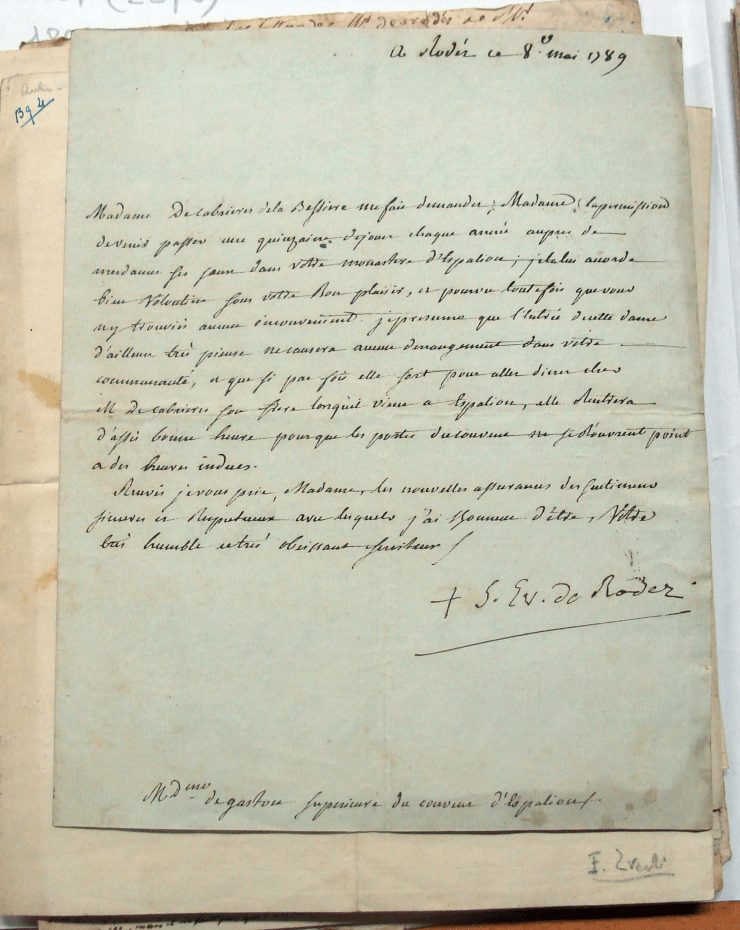 A Rodéz ce 8e mai 1789
Madame De cabrieres de la Bessiere me fais demander, Madame, la permission
de venir passer une quinzaine de jours chaque année aupres de
mesdames ses soeurs dans votre monastere d'Espalion; je la lui accorde
bien volontiers sous votre Bon plaisir, et pourvu toutefois que vous
n'y trouviés aucun inconvenient. je presume que l'entrée de cette dame
d'ailleurs très pieuse ne causera aucun derangement dans votre
communauté, et que si par fois elle sort pour aller diner chez
M. De cabrieres son frere lorsqu'il vient a Espalion, elle Rentrera
d'assés bonne heure pour que les portes du couvent ne se R'ouvrent point
a des heures indues.
Recevés je vous prie, Madame, les nouvelles assurances des sentimens
sinceres et Respectueux avec lesquels j'ai l'honneur d'être, Votre
très humble et très obeissant serviteur
+ S. Ev. de Rodez
Mdme de gaston superieure du couvent d'Espalion
Bg 4